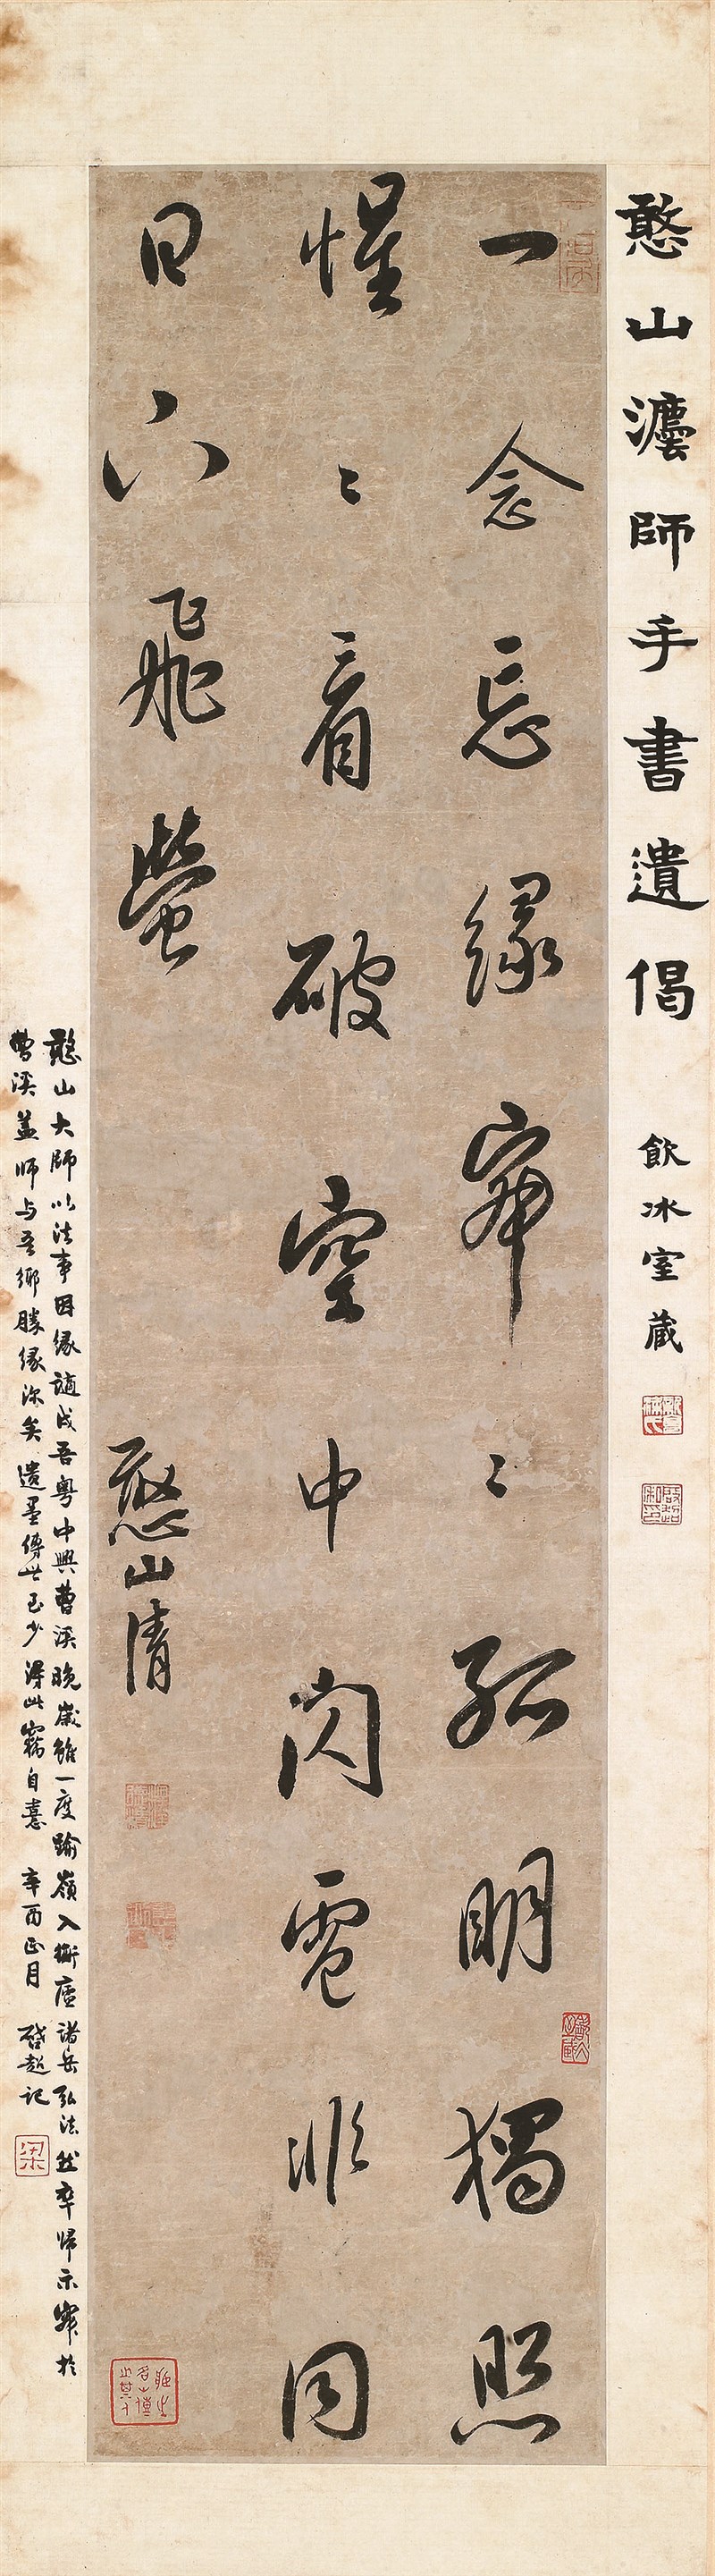 憨山灋師手書遺偈 飲冰室藏
一念忘緣寂〻孤明獨照
惺〻看破空中閃電非同
日下飛螢
憨山清
憨山大師以法事因緣謫戍吾粵中興曹溪晚歲雖一度踰嶺入衡廬諸岳弘法然卒歸示寂於
曹溪蓋師与吾鄉勝緣深矣遺墨傳世已少得此竊自憙 辛酉正月 啓超記
梁